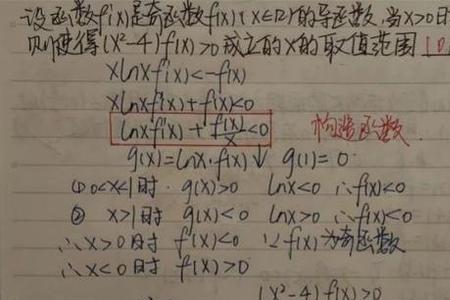 设函数f'(x)是奇函数f(x)(x∈R)的导函数,当x>0时
则使得(x²-4)f(x)>0成立的x的取值范围
xlnxf'(x)<-f(x)
xlnxf'(x)+f(x)<0
lnxf'(x)+f(x)/x<0 构造函数
g(x)=lnx·f(x)↓ g(1)=0
①0<x<1时. g(x)>0 lnx<0 ∴f(x)<0
② x>1时 g(x)<0 lnx>0 ∴f(x)<0
∴x>0时 f(x)<0 ∵f(x)为奇函数
∴x<0时 f(x)>0
(x²-4)f(x)>0